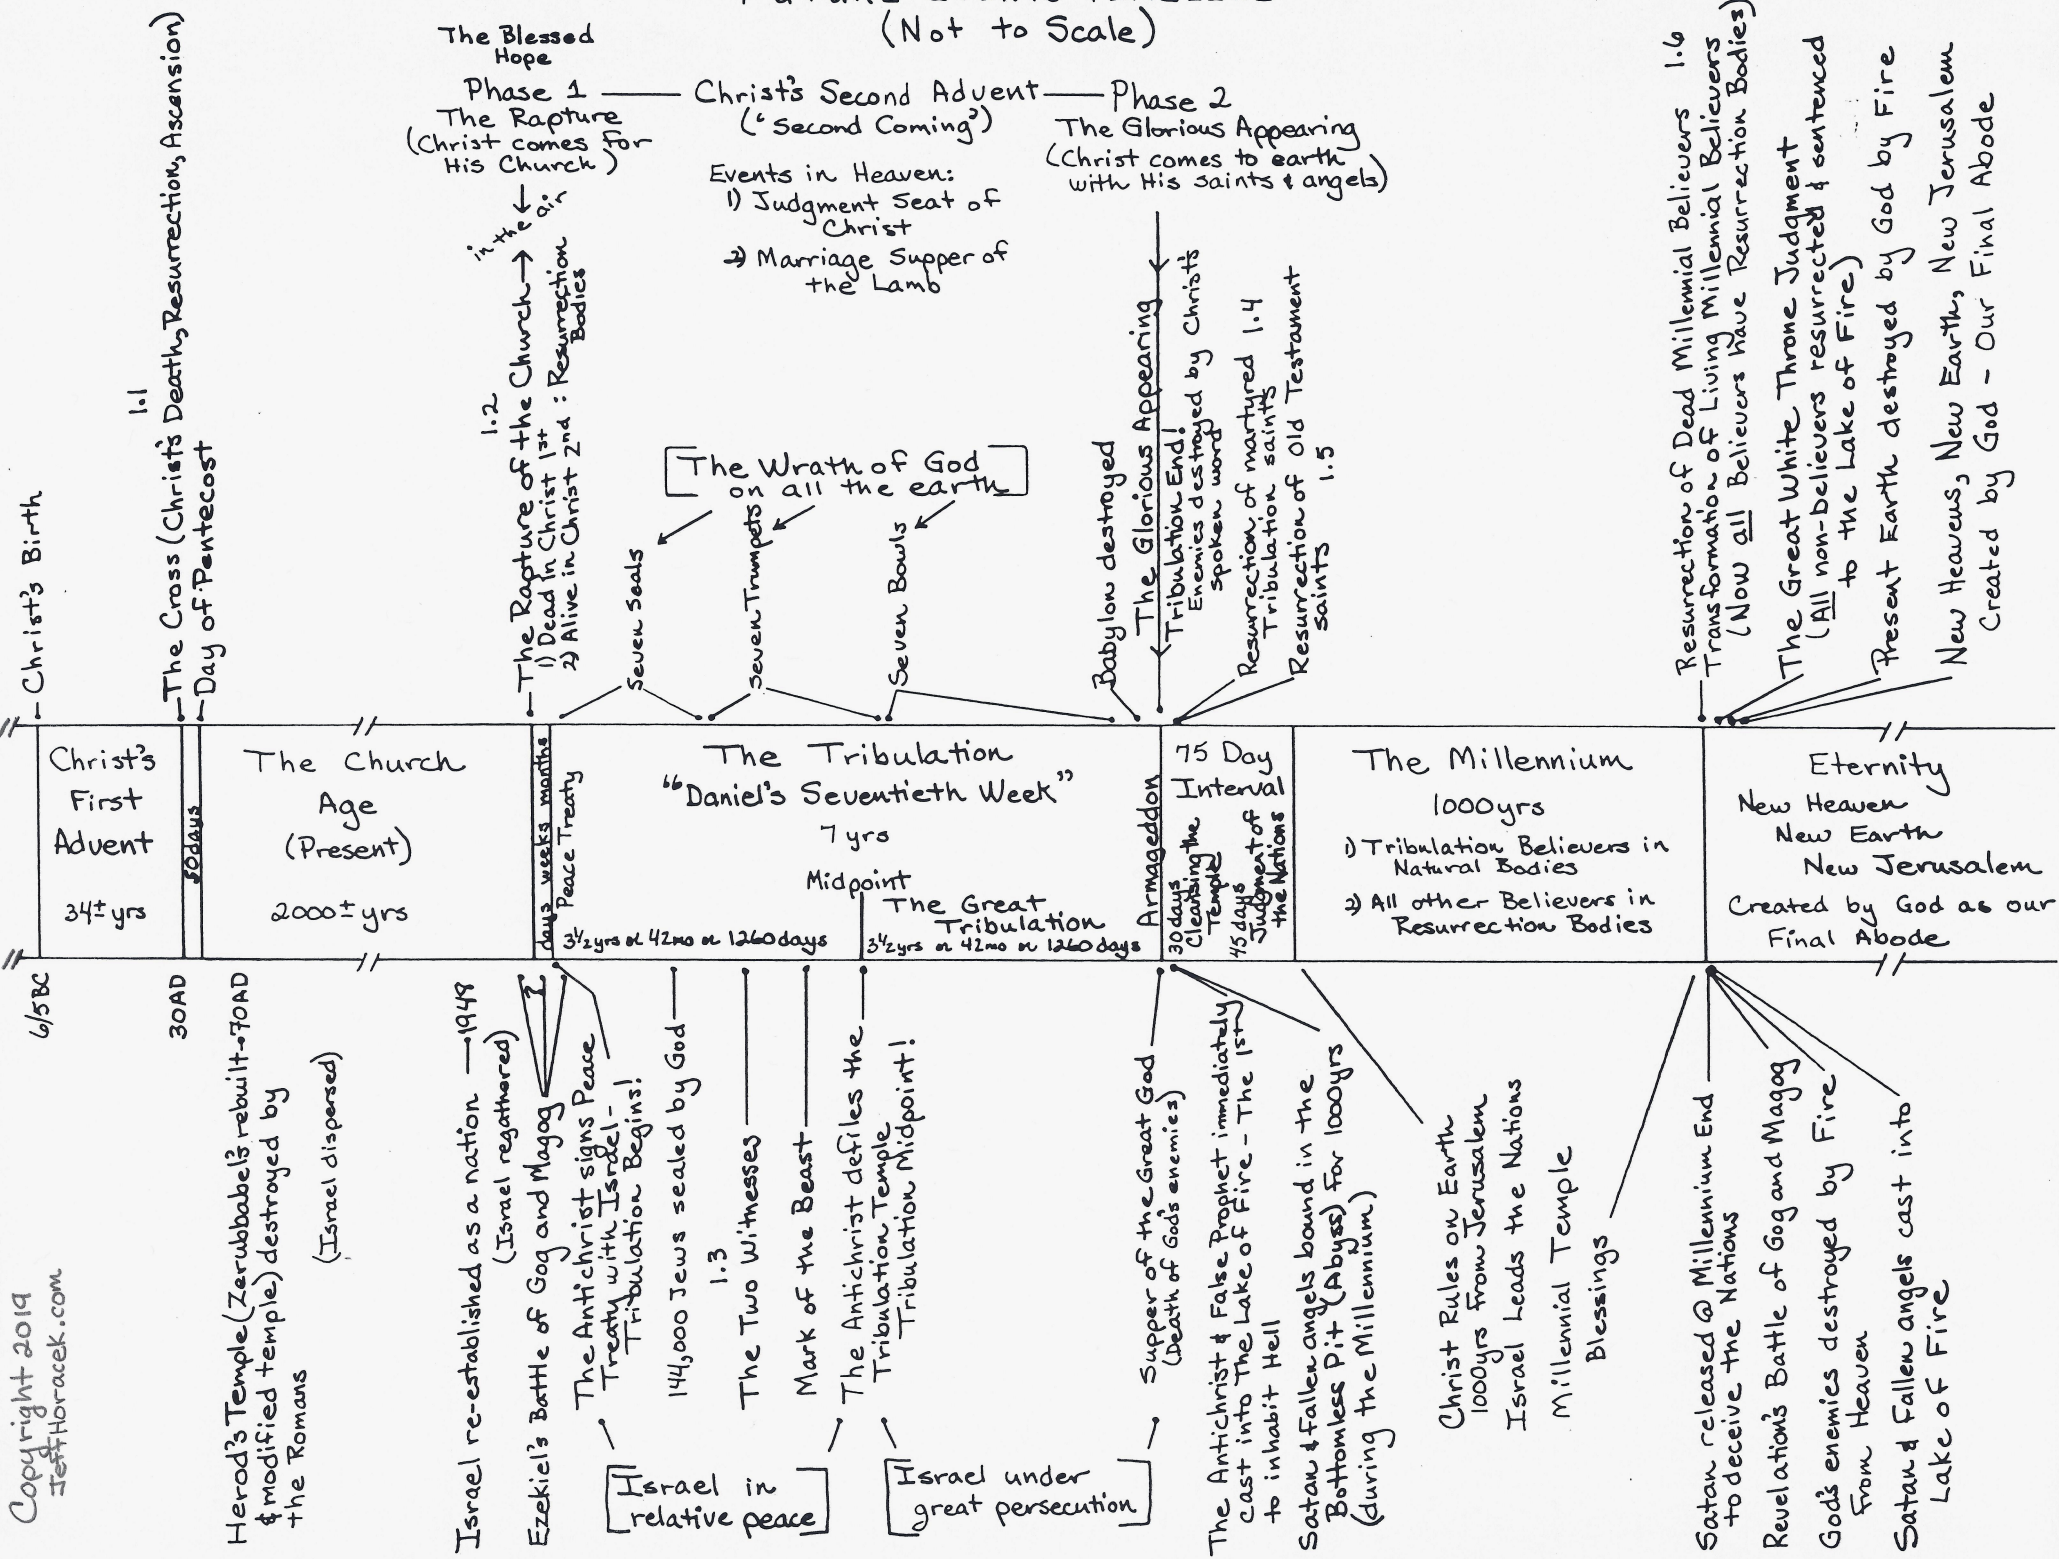 (Not to Scale)
The Blessed
Hope
Phase 1
The Rapture
(Christ comes for
His Church)
in the air
Christ's Second Advent
("Second Coming")
Events in Heaven:
1) Judgment Seat of
Christ
2) Marriage Supper of
the Lamb
Phase 2
The Glorious Appearing
(Christ comes to earth
with His saints & angels)
Christ's Birth
1.1
The Cross (Christ's Death, Resurrection, Ascension)
Day of Pentecost
1.2
The Rapture of the Church
1) Dead in Christ 1st
2) Alive in Christ 2nd : Resurrection
Bodies
The Wrath of God
on all the earth
Seven Seals
Seven Trumpets
Seven Bowls
Babylon destroyed
The Glorious Appearing
Tribulation End!
Enemies destroyed by Christ's
spoken word
Resurrection of martyred 1.4
Tribulation saints
Resurrection of Old Testament
saints 1.5
Resurrection of Dead Millennial Believers 1.6
Transformation of Living Millennial Believers
(Now all Believers have Resurrection Bodies)
The Great White Throne Judgment
(All non-believers resurrected & sentenced
to the Lake of Fire)
Present Earth destroyed by God by Fire
New Heavens, New Earth, New Jerusalem
Created by God - Our Final Abode
Christ's
First
Advent
34± yrs
50 days
The Church
Age
(Present)
2000± yrs
days weeks months
Peace Treaty
The Tribulation
"Daniel's Seventieth Week"
7 yrs
Midpoint
3½ yrs or 42 mo or 1260 days
The Great
Tribulation
3½ yrs or 42 mo or 1260 days
Armageddon
75 Day
Interval
30 days
Cleansing the
Temple
45 days
Judgment of
the Nations
The Millennium
1000 yrs
1) Tribulation Believers in
Natural Bodies
2) All other Believers in
Resurrection Bodies
Eternity
New Heaven
New Earth
New Jerusalem
Created by God as our
Final Abode
6/5 BC
30 AD
Herod's Temple (Zerubbabel's rebuilt → 70 AD
& modified temple) destroyed by
the Romans
(Israel dispersed)
Israel re-established as a nation → 1948
(Israel regathered)
?
Ezekiel's Battle of Gog and Magog
The Antichrist signs Peace
Treaty with Israel -
Tribulation Begins!
144,000 Jews sealed by God
1.3
The Two Witnesses
Mark of the Beast
The Antichrist defiles the
Tribulation Temple
Tribulation Midpoint!
Israel in
relative peace
Israel under
great persecution
Supper of the Great God
(Death of God's enemies)
The Antichrist & False Prophet immediately
cast into The Lake of Fire - The 1st
to inhabit Hell
Satan & fallen angels bound in the
Bottomless Pit (Abyss) for 1000 yrs
(during the Millennium)
Christ Rules on Earth
1000 yrs from Jerusalem
Israel Leads the Nations
Millennial Temple
Blessings
Satan released @ Millennium End
to deceive the Nations
Revelation's Battle of Gog and Magog
God's enemies destroyed by Fire
from Heaven
Satan & fallen angels cast into
Lake of Fire
Copyright 2019
JeffHoracek.com